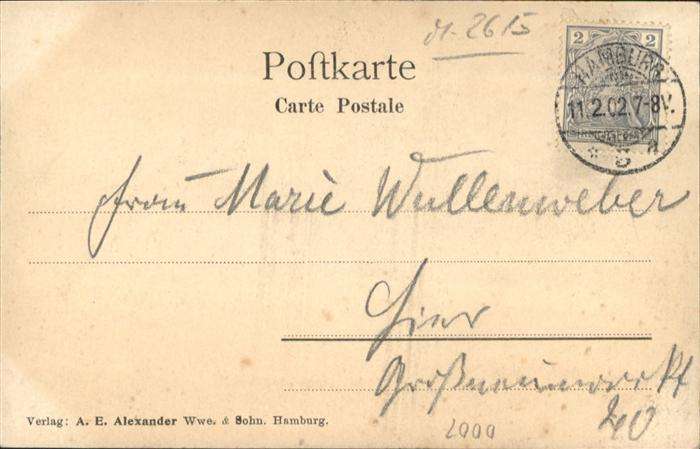 2615
Poſtkarte
Carte Postale
2 2
HAMBURG
11.2.02.7-8V.
* 5 a
Frau Marie Wullenweber
Hier
Großneumarkt
40
Verlag: A. E. Alexander Wwe. & Sohn. Hamburg.
2000